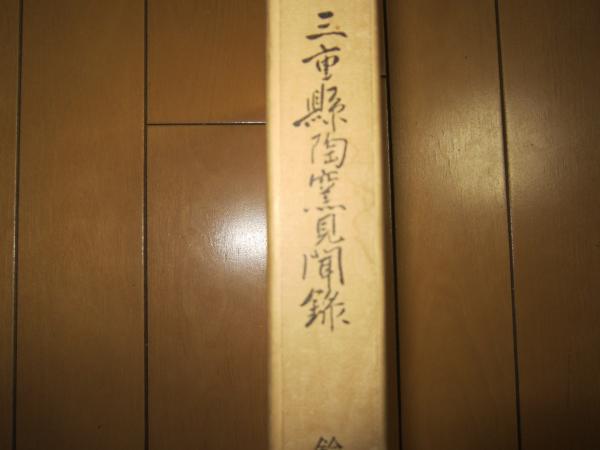 三重縣陶窯見聞録